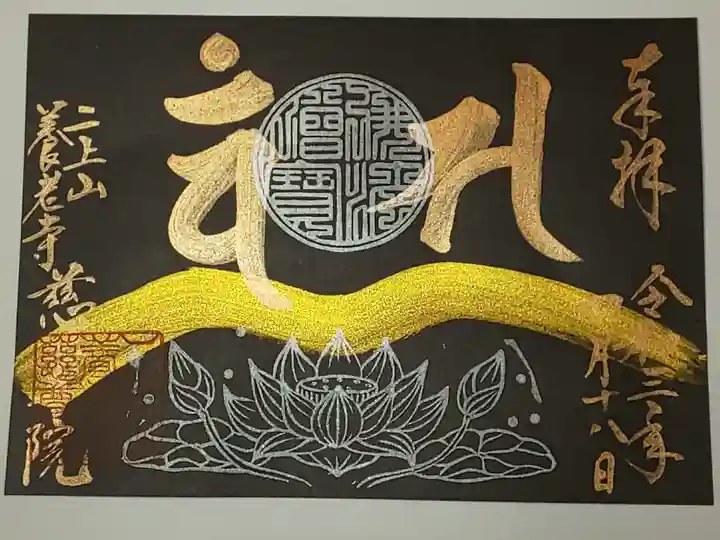 奉拝
令和三年
月十八日
佛法僧寶
二上山
養老寺 慈
院